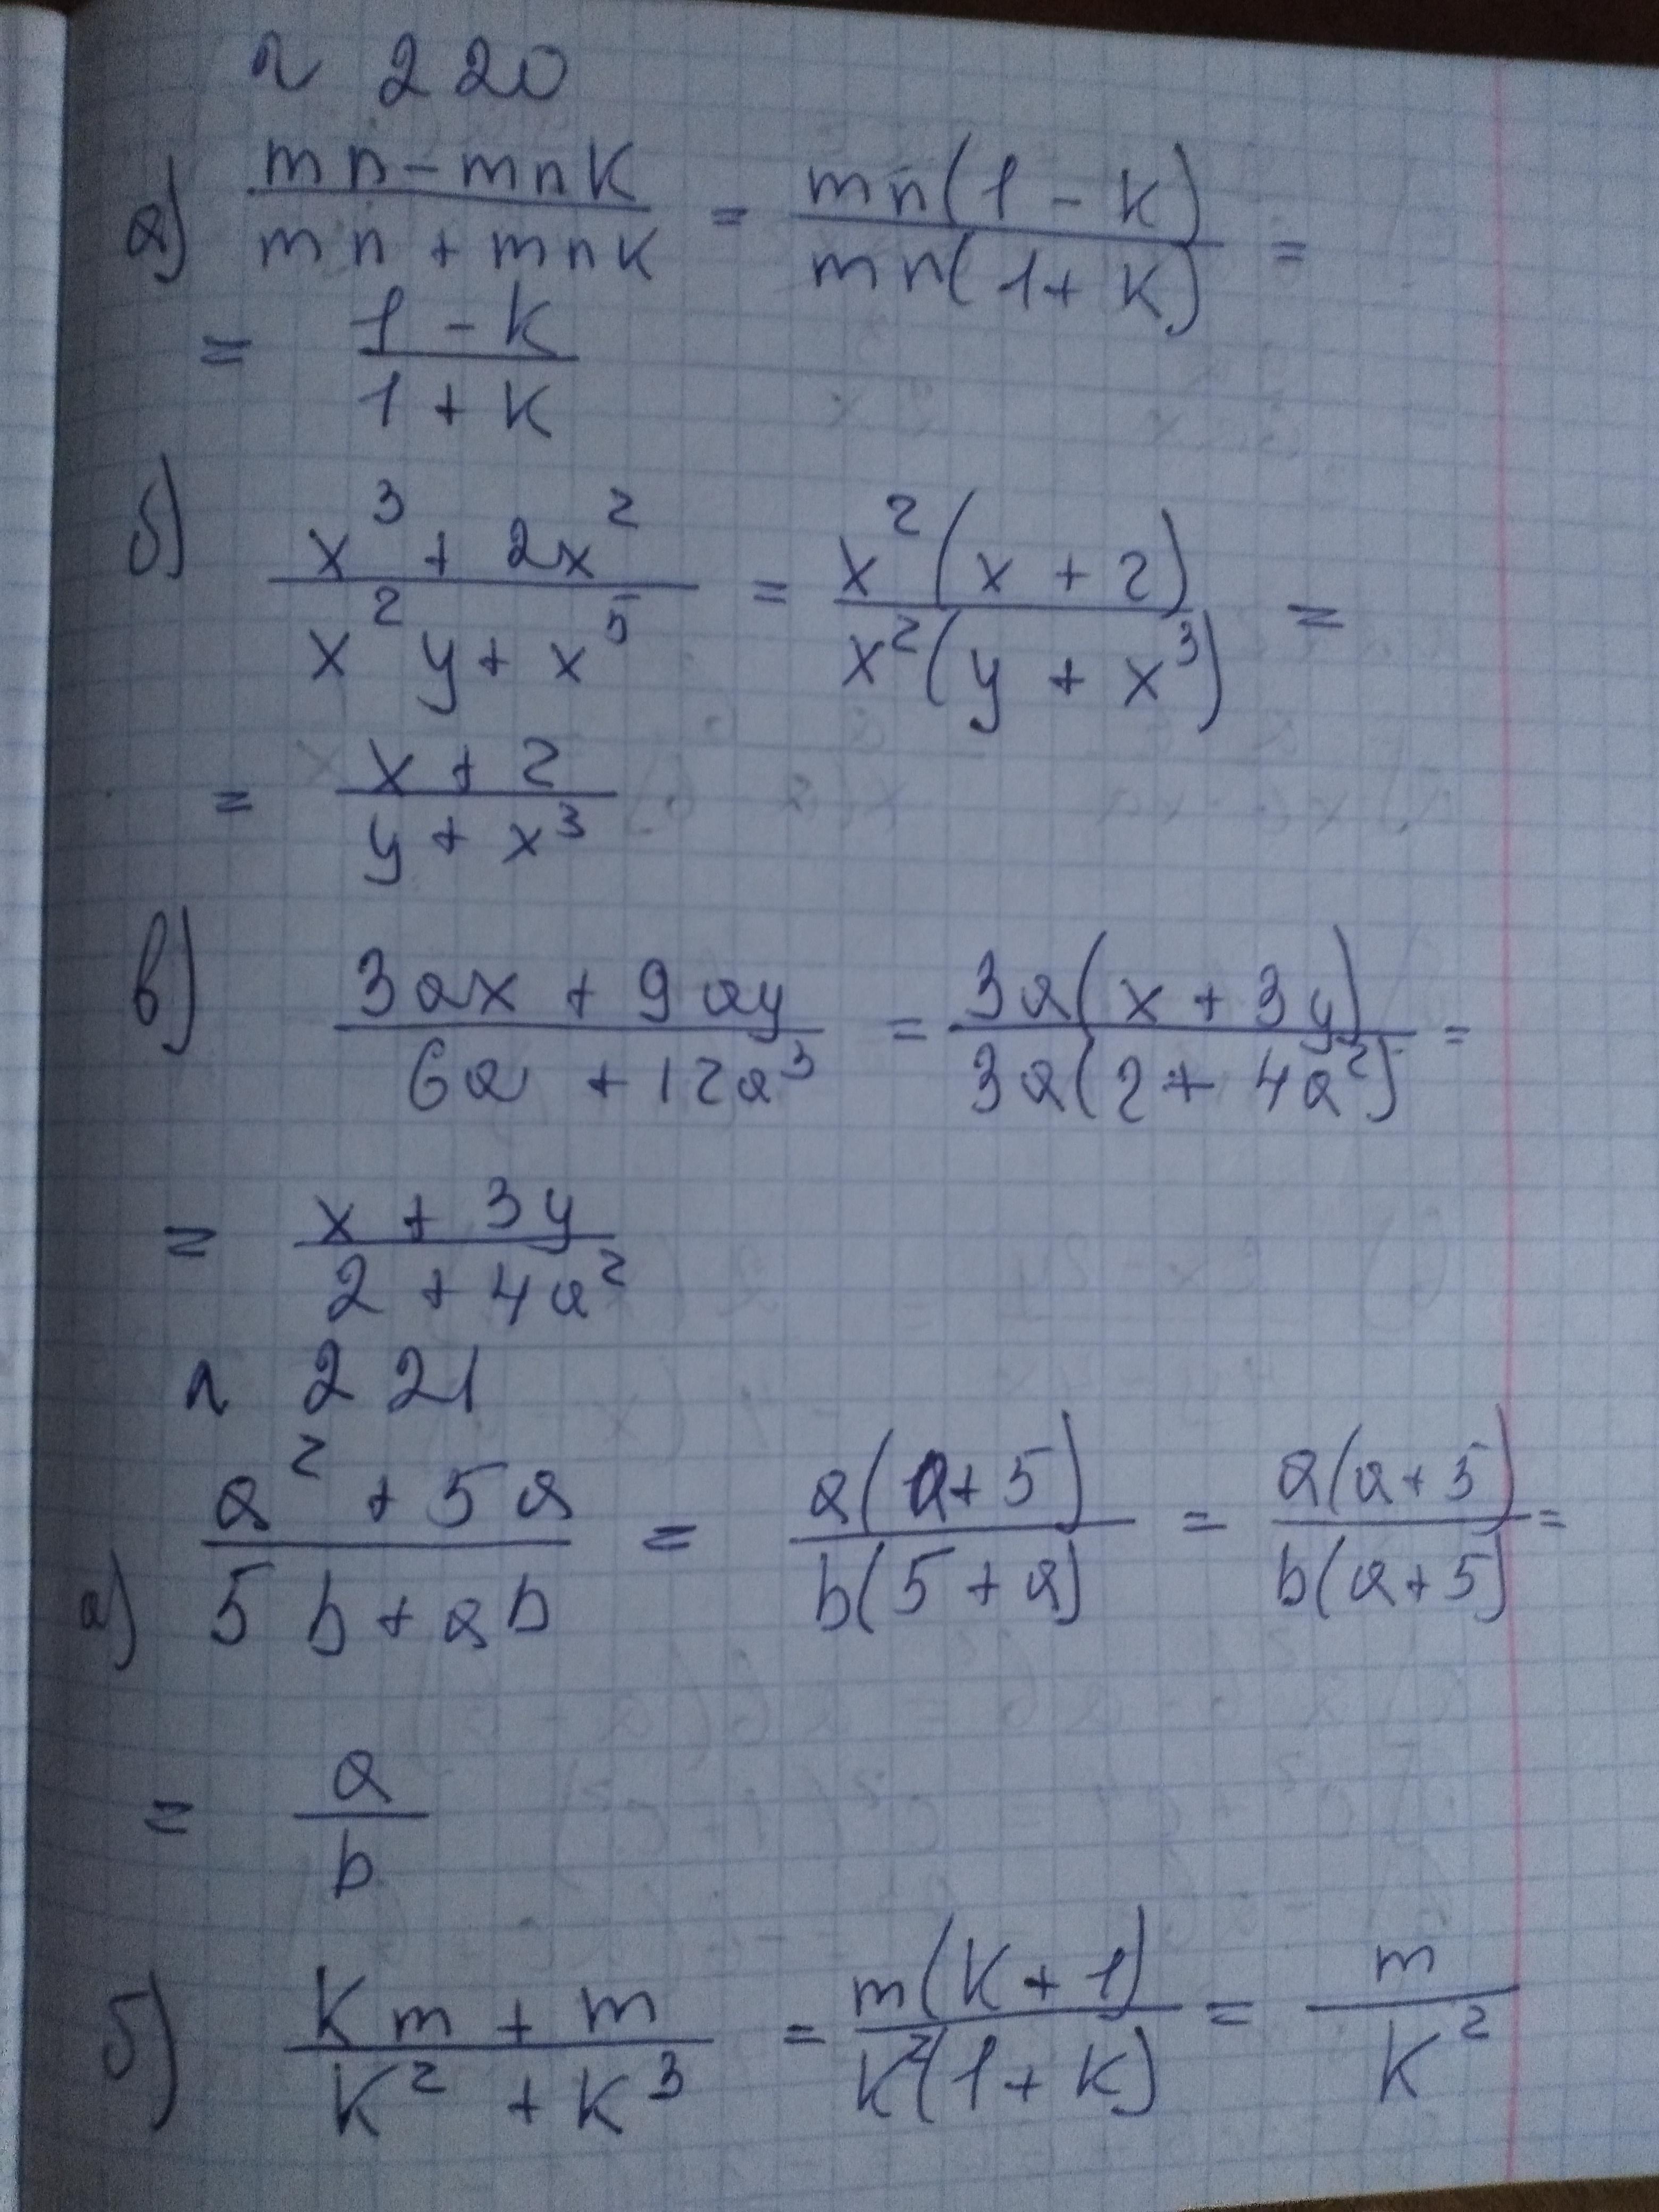 n 220
а) (mn - mnk)/(mn + mnk) = (mn(1 - k))/(mn(1 + k)) =
= (1 - k)/(1 + k)
б) (x³ + 2x²)/(x²y + x⁵) = (x²(x + 2))/(x²(y + x³)) =
= (x + 2)/(y + x³)
в) (3ax + 9ay)/(6a + 12a³) = (3a(x + 3y))/(3a(2 + 4a²)) =
= (x + 3y)/(2 + 4a²)
n 221
а) (a² + 5a)/(5b + ab) = (a(a + 5))/(b(5 + a)) = (a(a + 5))/(b(a + 5)) =
= a/b
б) (km + m)/(k² + k³) = (m(k + 1))/(k²(1 + k)) = m/k²